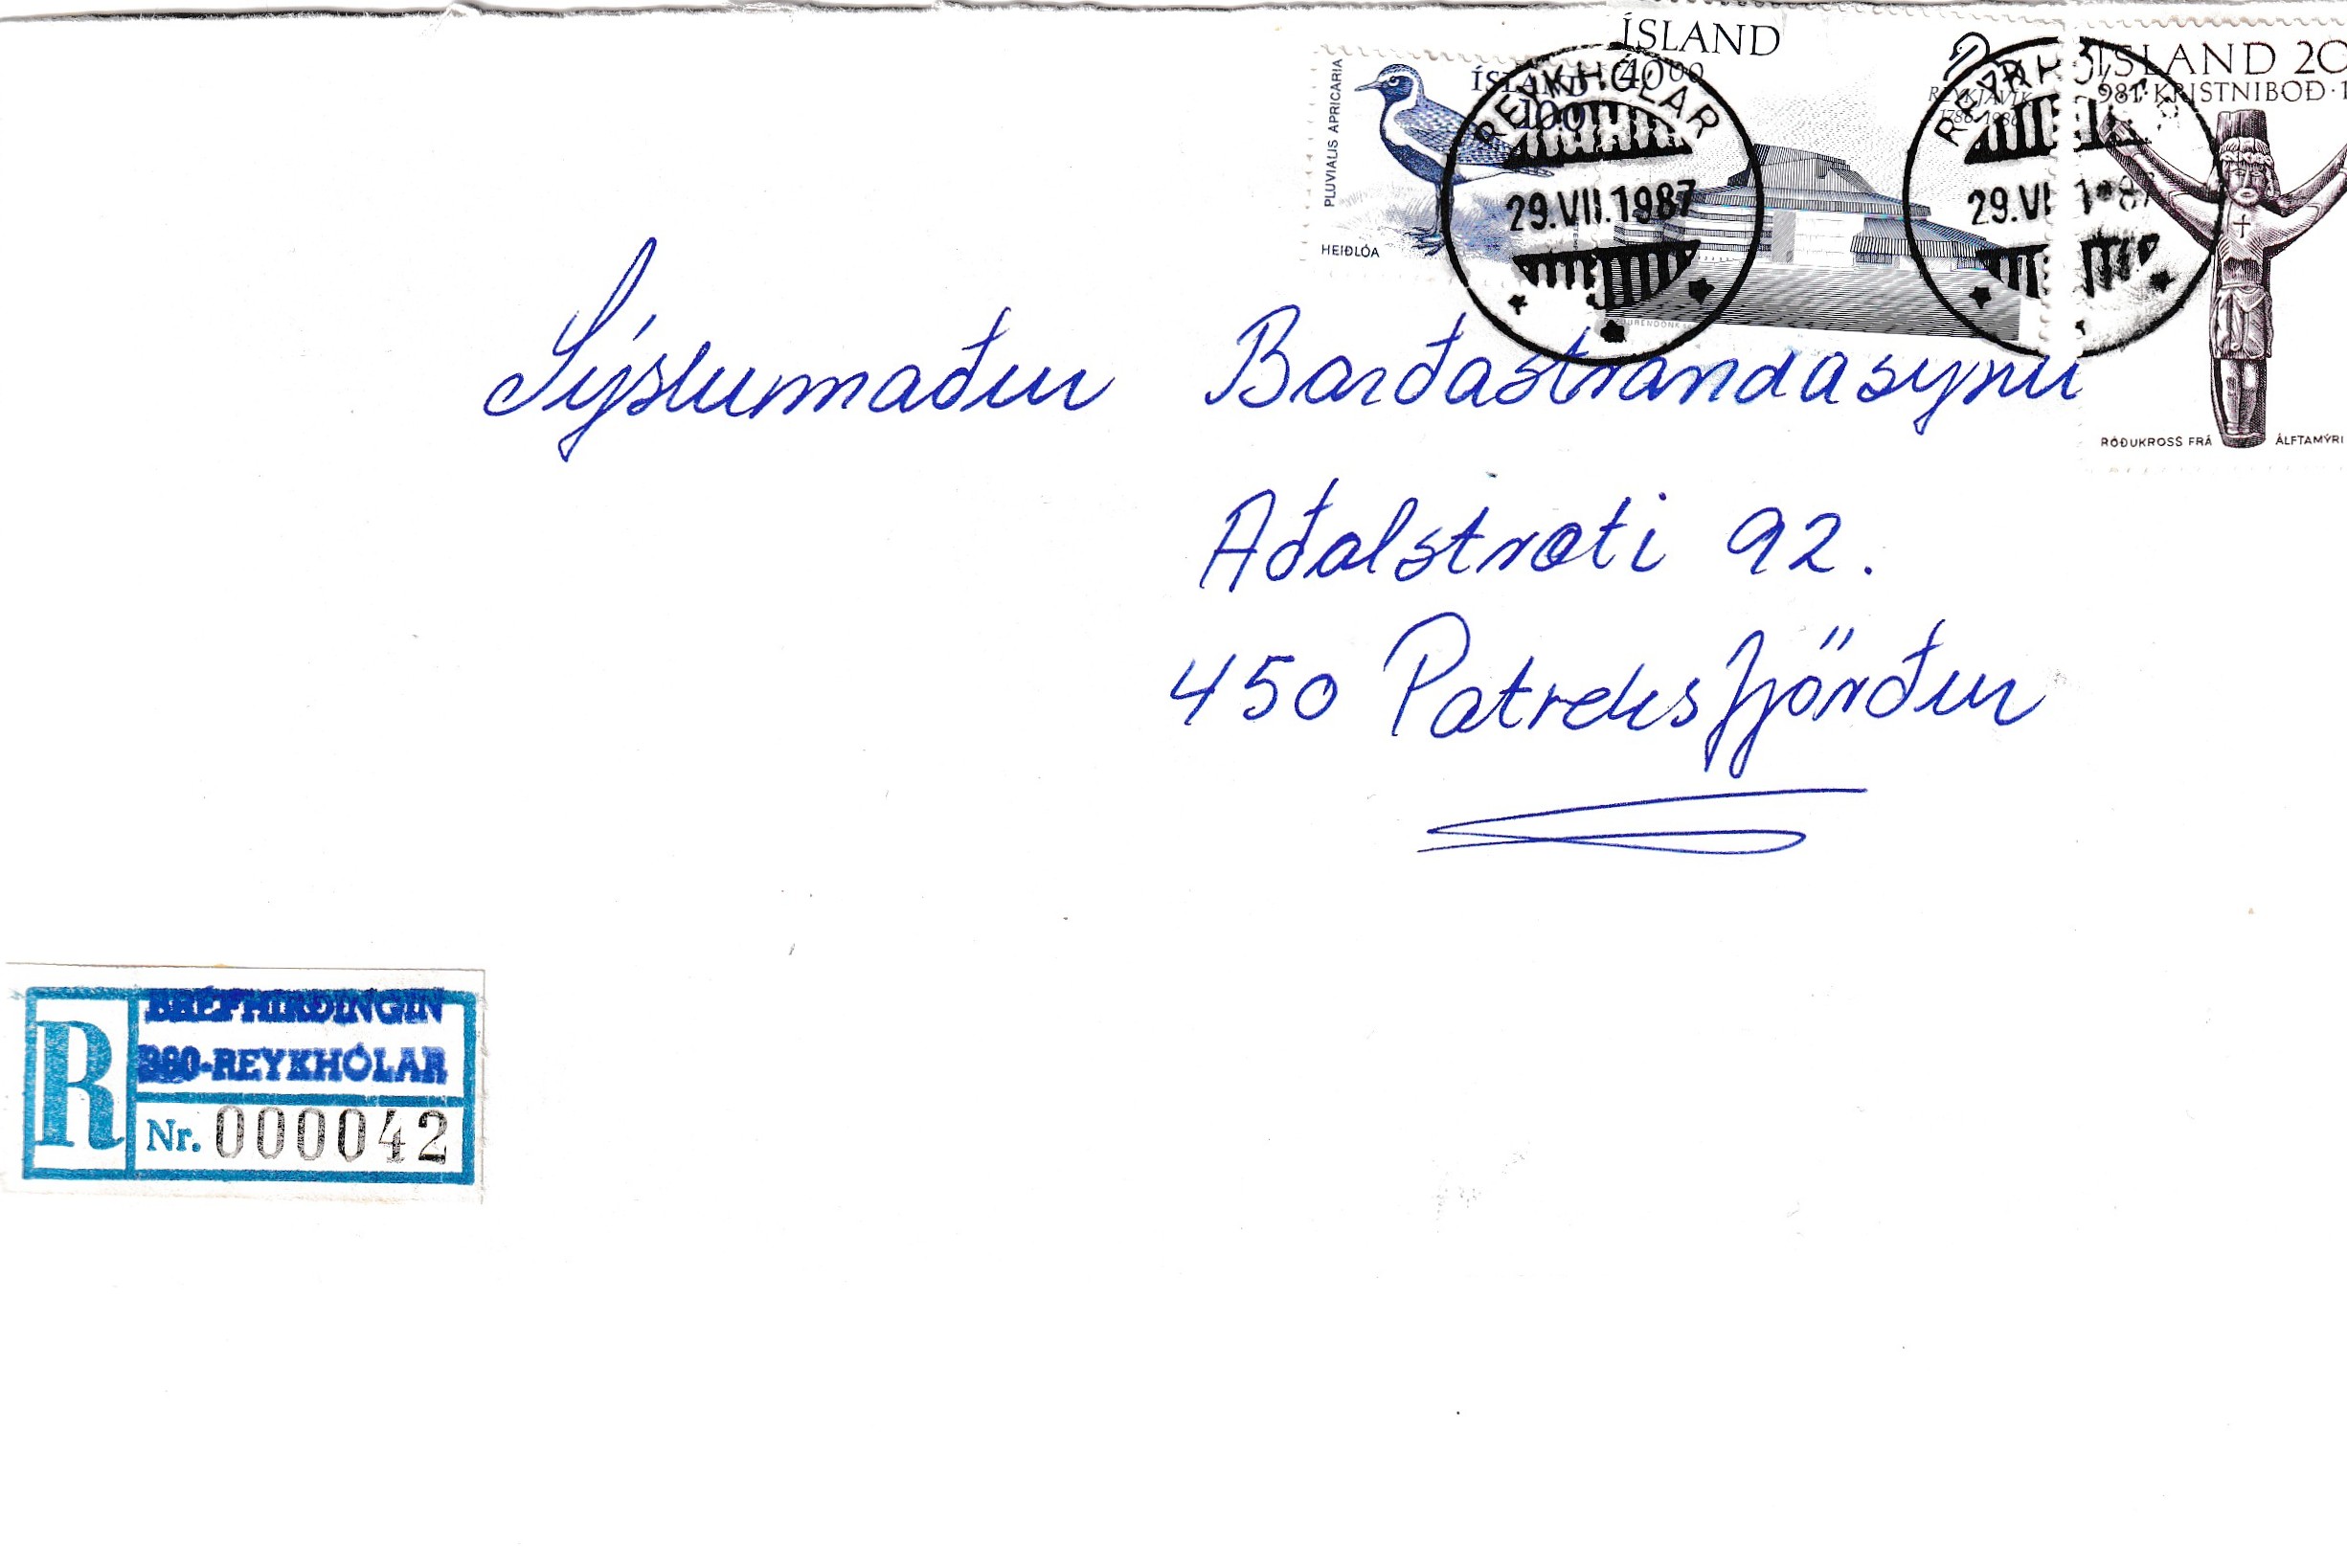 PLUVIALIS APRICARIA
ÍSLAND
100
HEIÐLÓA
ÍSLAND
4000
REYKJAVÍK
1786 1986
ÍSLAND 20
981·KRISTNIBOÐ·1
RÓÐUKROSS FRÁ ÁLFTAMÝRI
REYKHÓLAR
29.VII.1987
REYKHÓL
29.VI 1987
Sýslumaður Barðastrandasýslu
Aðalstræti 92.
450 Patreksfjörður
BRÉFHIRÐINGIN
R 380-REYKHÓLAR
Nr. 000042